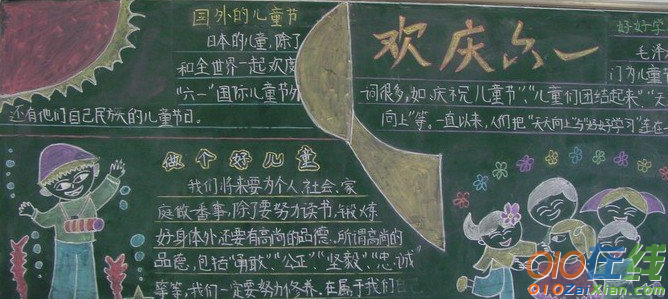 国外的儿童节
日本的儿童，除了
和全世界一起欢度
“六一”国际儿童节外
还有他们自己民族的儿童节日。
欢庆六一
好好学
毛泽
门为儿童
词很多，如“庆祝儿童节”、“儿童们团结起来”、“天
向上”等。一直以来，人们把“天天向上”与“好好学习”连在
做个好儿童
我们将来要为个人、社会、家
庭做番事，除了要努力读书，锻炼
好身体外还要有高尚的品德，所谓高尚的
品德，包括“勇敢”、“公正”、“坚毅”、“忠诚”
等，我们一定要努力修养，在属于我们自己
010在线
010ZaiXian.com